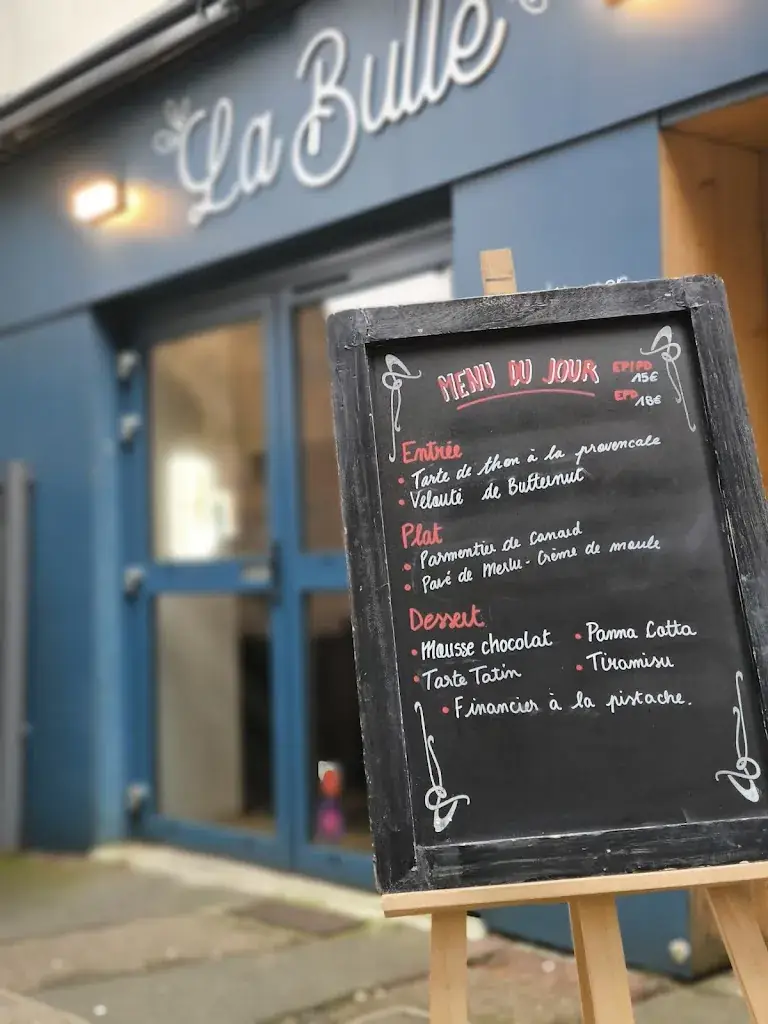 La Bulle
MENU DU JOUR
EP/PD
15€
EPD
18€
Entrée
• Tarte de thon à la provencale
• Velouté de Butternut
Plat
• Parmentier de canard
• Pavé de Merlu - Crème de moule
Dessert
• Mousse chocolat
• Panna Cotta
• Tarte Tatin
• Tiramisu
• Financier à la pistache.